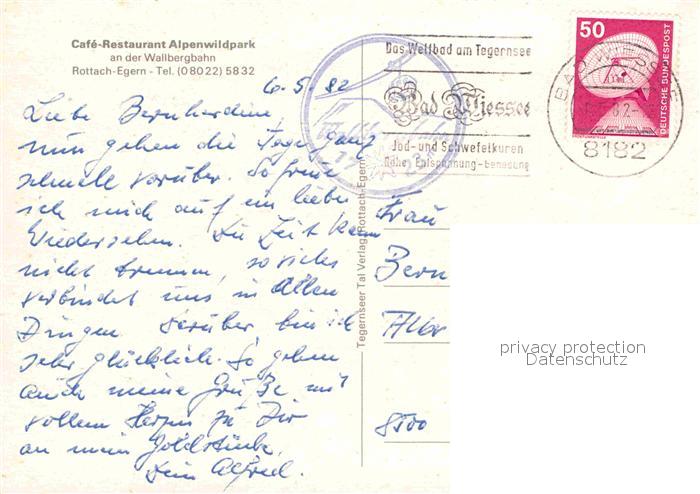 Café-Restaurant Alpenwildpark
an der Wallbergbahn
Rottach-Egern - Tel. (08022) 5832
6.5.82
Liebe Bernhardine,
nun gehen die Tage ganz
schnell vorüber. So freue
ich mich auf ein liebes
Wiedersehen. Die Zeit kann
nicht trennen, so vieles
verbindet uns in Allen
Dingen. Darüber bin ich
sehr glücklich. So gehen
auch meine Grüße mit
vollem Herzen zu Dir
an mein Goldstück.
Dein Alfred.
Tegernseer Tal Verlag, Rottach-Egern
Das Weltbad am Tegernsee
Bad Wiessee
Jod- und Schwefelkuren
Nähe Entspannung-Genesung
50
DEUTSCHE BUNDESPOST
BAD WIESSEE
8182
Frau
Bern
Albr
8500
privacy protection
Datenschutz